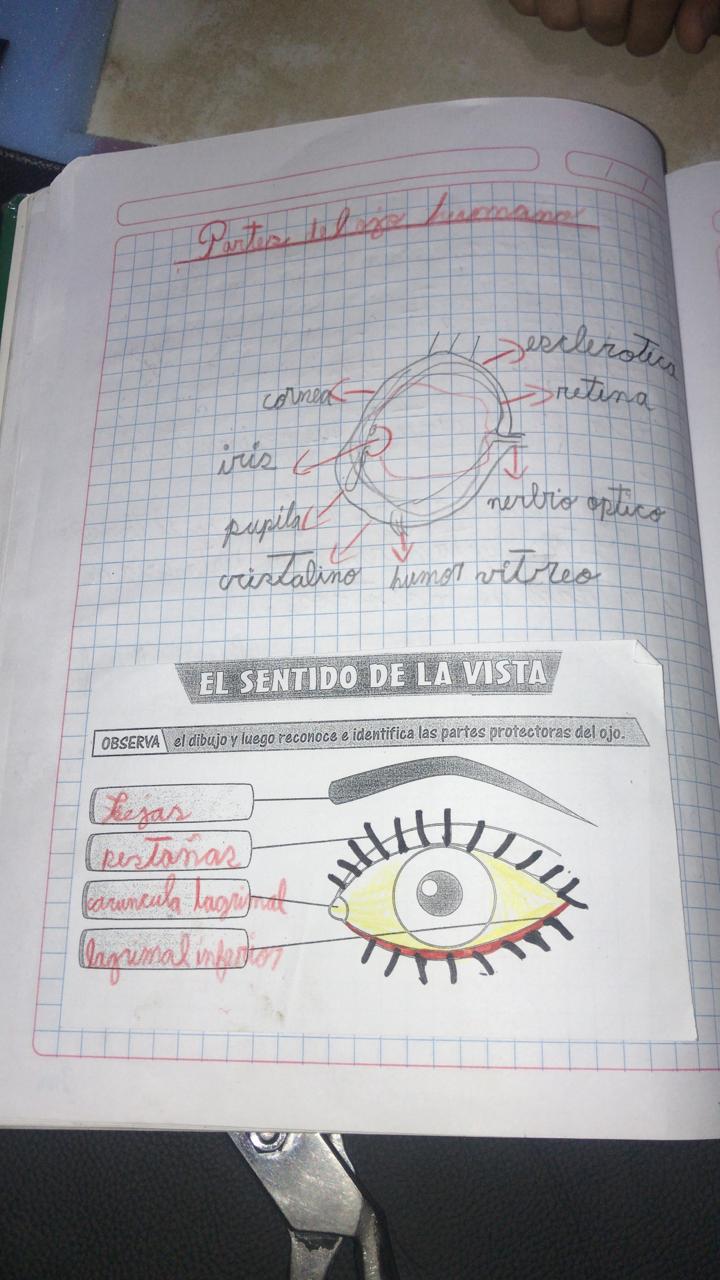 Partes del ojo humano
esclerotica
cornea
retina
iris
nerbio optico
pupila
cristalino
humor vitreo
EL SENTIDO DE LA VISTA
OBSERVA el dibujo y luego reconoce e identifica las partes protectoras del ojo.
pestañas
caruncula lagrimal
lagrimal inferior